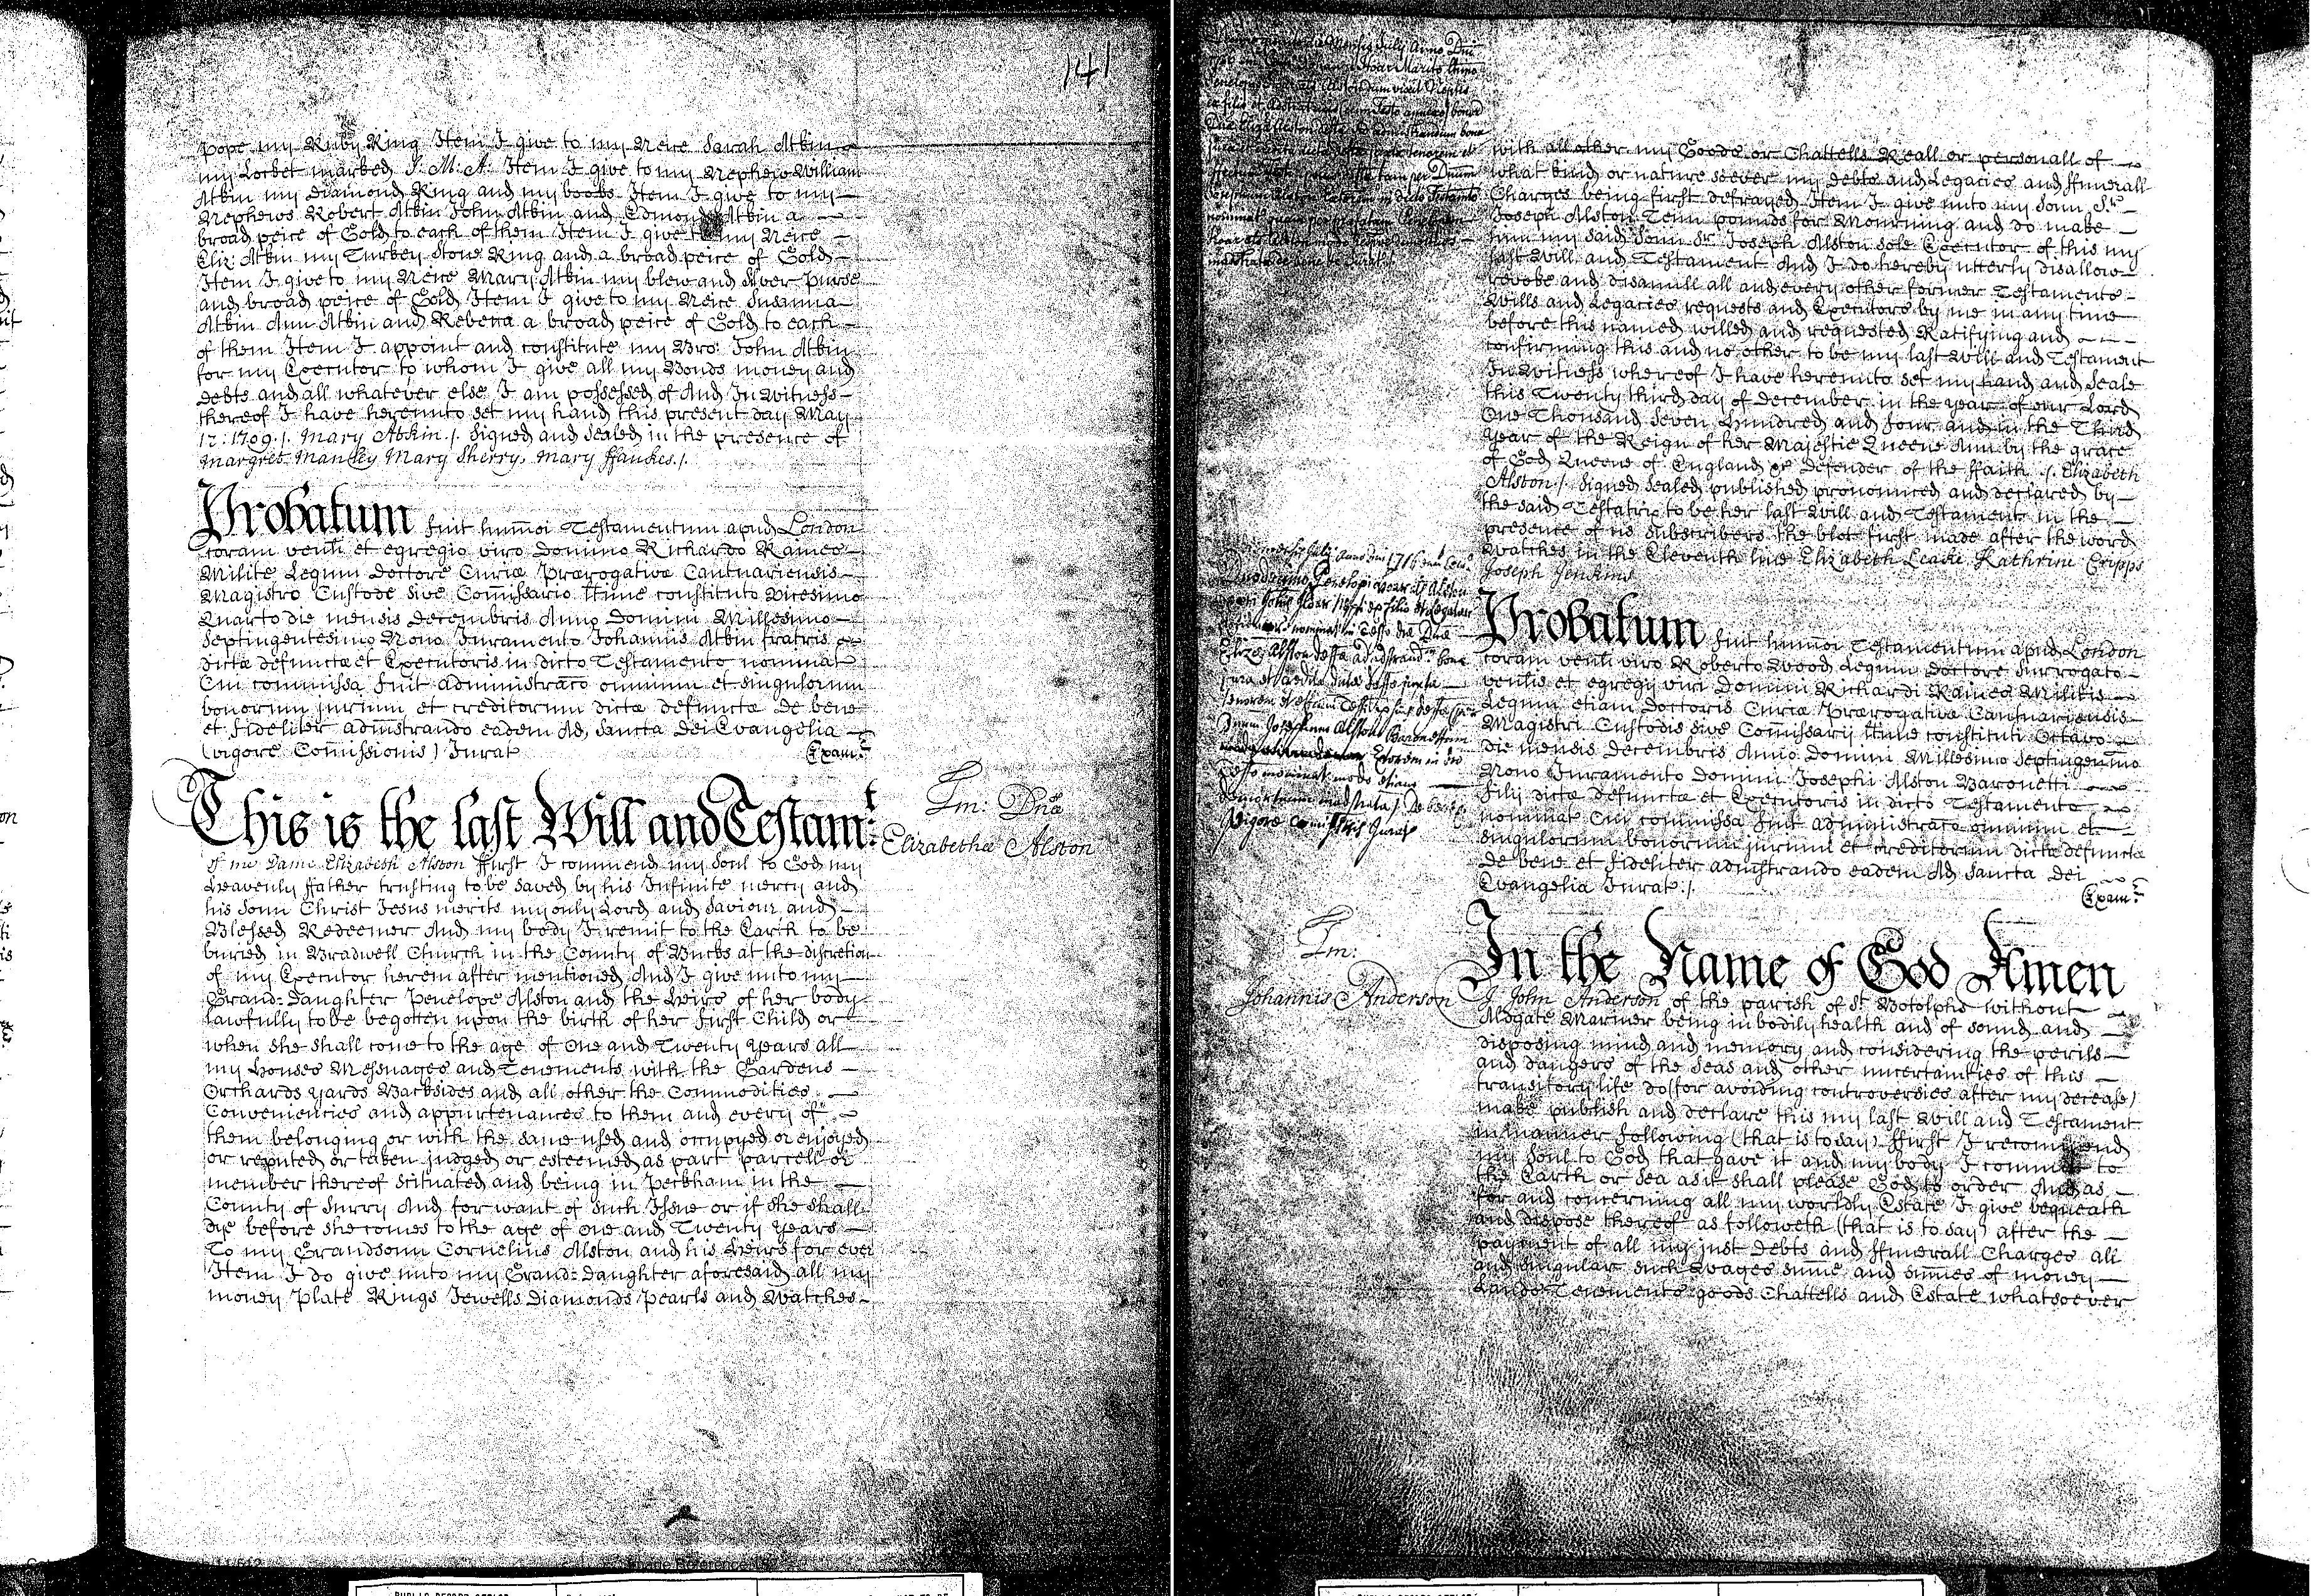 141
Pope my Ruby Ring Item I give to my Neice Sarah Atkin
my Locket marked J. M: A: Item I give to my Nephew William
Atkin my Diamond Ring and my books Item I give to my
Nephews Robert Atkin John Atkin and Edmond Atkin a
broad peice of Gold to each of them Item I give to my Neice
Eliz: Atkin my Turkey stone Ring and a broad peice of Gold
Item I give to my Neice Mary Atkin my blew and silver purse
and broad peice of Gold Item I give to my Neice Susanna
Atkin Ann Atkin and Rebecca a broad peice of Gold to each
of them Item I appoint and constitute my Bro: John Atkin
for my Executor to whom I give all my Bonds money and
debts and all whatever else I am possessed of And In witness
thereof I have hereunto set my hand this present day May
12: 1709 ./. Mary Atkin ./. Signed and sealed in the presence of
Margret Manley Mary Sherry, Mary ffaukes ./.
Probatum fuit humoi Testamentum apud London
coram venli et egregio viro Domino Richardo Raines
Milite Legum Doctore Curiæ Prærogativæ Cantuariensis
Magistro Custode sive Commissario ltime constituto vicesimo
Quarto die mensis Decembris Anno Domini Millesimo
Septingentesimo Nono Juramento Johannis Atkin fratris
dictæ defunctæ et Executoris in dicto Testamento nominat
Cui commissa fuit Administraco omnium et singulorum
bonorum jurium et creditorum dictæ defunctæ de bene
et fideliter administrando eadem Ad sancta Dei Evangelia
(vigore Commissionis) Jurat
Exam:r
This is the last Will and Testam:t
Tm: Dnæ
Elizabethæ Alston
of me Dame Elizabeth Alston ffirst I commend my Soul to God my
Heavenly ffather trusting to be saved by his Infinite mercy and
his sonn Christ Jesus merits my only Lord and Saviour and
Blessed Redeemer And my body I remit to the Earth to be
buried in Bradwell Church in the County of Bucks at the discretion
of my Executor herein after mentioned And I give unto my
Grand=daughter Penelope Alston and the Heirs of her body
lawfully to be begotten upon the birth of her first Child or
when she shall come to the age of One and Twenty years all
my Houses Messuages and Tenements with the Gardens
Orchards yards Backsides and all other the Commodities
Conveniencies and appurtenances to them and every of
them belonging or with the same used and occupyed or enjoyed
or reputed or taken judged or esteemed as part parcell or
member thereof scituated and being in Peckham in the
County of Surry And for want of such Issue or if she shall
dye before she comes to the age of One and Twenty years
To my Grandsonn Cornelius Alston and his Heirs for ever
Item I do give unto my Grand=daughter aforesaid all my
money Plate Rings Jewells Diamonds Pearls and Watches
with all other my Goods or Chattells Reall or personall of
what kind or nature soever my debts and Legacies and ffunerall
Charges being first defrayed Item I give unto my sonn Sr.
Joseph Alston Tenn pounds for Mourning and do make
him my said sonn Sr. Joseph Alston sole Executor of this my
last Will and Testament And I do hereby utterly disallow
revoke and disanull all and every other former Testaments
Wills and Legacies requests and Executors by me in any time
before this named willed and requested Ratifying and
confirming this and no other to be my last Will and Testament
In witness whereof I have hereunto set my hand and Seale
this Twenty third day of December in the year of our Lord
One Thousand Seven Hundred and Four and in the Third
year of the Reign of her Majestie Queene Ann by the grace
of God Queene of England &c Defender of the ffaith ./. Elizabeth
Alston ./. Signed sealed published pronounced and declared by
the said Testatrix to be her last Will and Testament in the
presence of us subscribers the blot first made after the word
Watches in the Eleventh line Elizabeth Leake Kathrine Cripps
Joseph Jenkins
Probatum fuit humoi Testamentum apud London
coram venli viro Roberto Wood Legum Doctore Surrogato
venlis et egregij viri Domini Richardi Raines Militis
Legum etiam Doctoris Curiæ Prærogativæ Cantuariensis
Magistri Custodis sive Commissarij ltime constituti Octavo
die mensis Decembris Anno Domini Millesimo Septingenmo
Nono Juramento Domini Josephi Alston Baronetti
filij dictæ defunctæ et Executoris in dicto Testamento
nominat Cui commissa fuit Administraco omnium et
singulorum bonorum jurium et creditorum dictæ defunctæ
De bene et fideliter admstrando eadem Ad Sancta Dei
Evangelia Jurat ./.
Exam:r
In the Name of God Amen
Tm:
Johannis Anderson
I John Anderson of the parish of St. Botolphs without
Aldgate Mariner being in bodily health and of sound and
disposing mind and memory and considering the perils
and dangers of the Seas and other uncertainties of this
transitory life do (for avoiding controversies after my decease)
make publish and declare this my last Will and Testament
in manner following (that is to say) ffirst I recommend
my Soul to God that gave it and my body I commit to
the Earth or Sea as it shall please God to order And as
for and concerning all my worldly Estate I give bequeath
and dispose thereof as followeth (that is to say) after the
payment of all my just Debts and ffunerall Charges all
and singular such Wages sume and sumes of money
Lands Tenements goods Chattells and Estate whatsoever